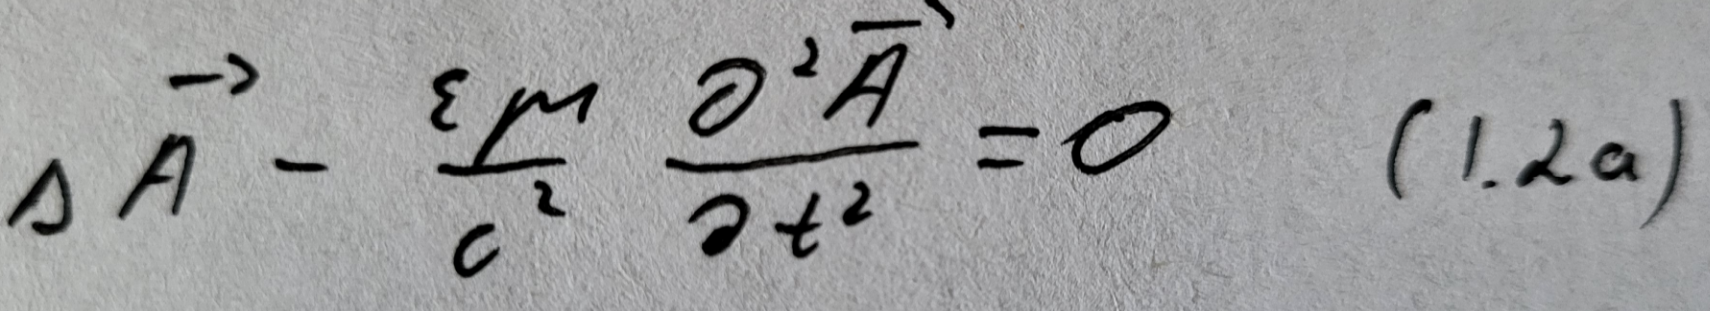 $\Delta \vec{A} - \frac{\varepsilon\mu}{c^2} \frac{\partial^2 \vec{A}}{\partial t^2} = 0 \quad (1.2a)$